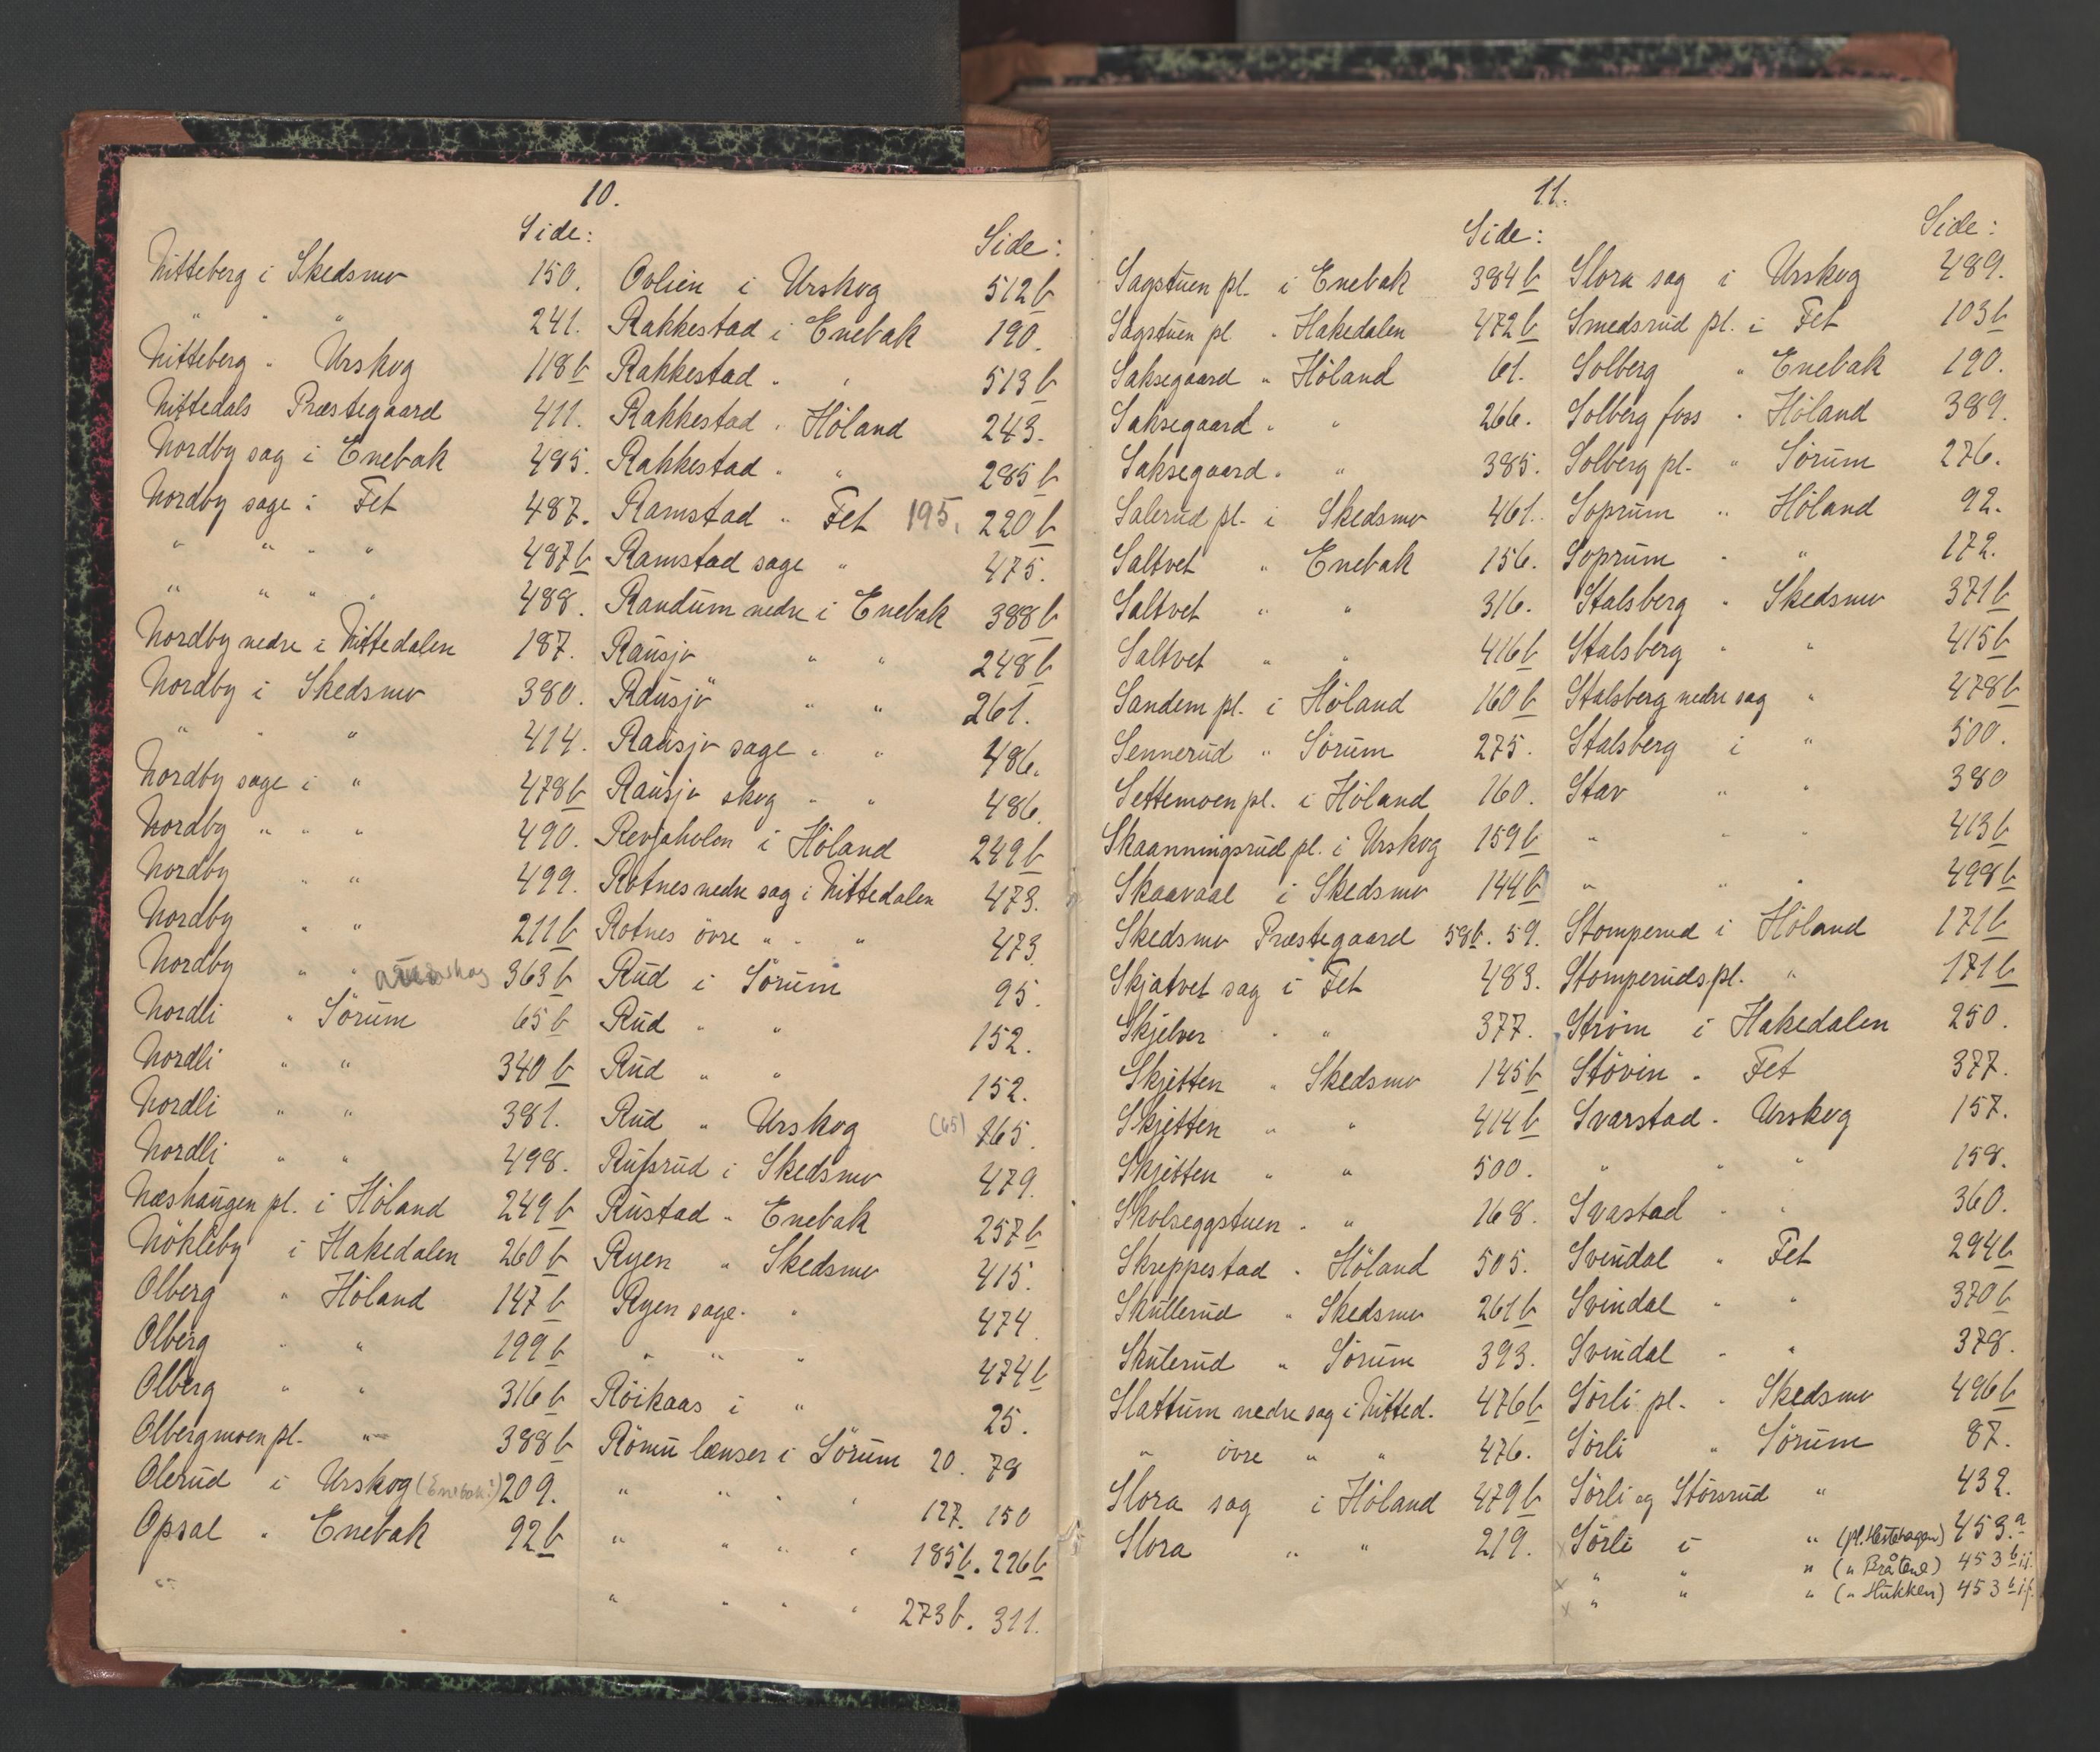 10.
Side:
Nitteberg i Skedsmo 150.
" " " 241.
Nitteberg " Urskog 118 b
Nittedals Præstegaard 411.
Nordby sag i Enebak 485.
Nordby sage i Fet 487.
" " " " 487 b
" " " " 488.
Nordby nedre i Nittedalen 187.
Nordby i Skedsmo 380.
" " " 414.
Nordby sage i " 478 b
Nordby " " " 490.
Nordby " " 499.
Nordby " " 211 b
Nordby " " 363 b
Nordli " Sörum 65 b
Nordli " " 340 b
Nordli " " 381.
Nordli " " 498.
Næshaugen pl. i Höland 249 b
Nökleby i Hakedalen 260 b
Olberg " Höland 147 b
Olberg " " 199 b
Olberg " " 316 b
Olbergmoen pl. " 388 b
Olerud i Urskog (Enebak?) 209.
Opsal " Enebak 92 b
Side:
Ovlien i Urskog 512 b
Rakkestad i Enebak 190.
Rakkestad " " 513 b
Rakkestad " Höland 243.
Rakkestad " " 285 b
Ramstad " Fet 195. 220 b
Ramstad sage " 475.
Randum nedre i Enebak 388 b
Rausjö " " 248 b
Rausjö " " 261.
Rausjö sage " " 486.
Rausjö skog " " 486.
Revjaholen i Höland 249 b
Rotnes nedre sag i Nittedalen 473.
Rotnes övre " " " 473.
Rud i Sörum 95.
Rud " " 152.
Rud " " 152.
Rud " Urskog (65) 165.
Rufsrud i Skedsmo 479.
Rustad " Enebak 257 b
Ryen " Skedsmo 415.
Ryen sage " " 474.
" " " 474 b
Röikaas i " 25.
Römu lænser i Sörum 20. 78
" " " " 127. 150
" " " " 185 b. 226 b
" " " " 273 b. 311.
11.
Side:
Sagstuen pl. i Enebak 384 b
Sagstuen pl " Hakedalen 472 b
Saksegaard " Höland 61.
Saksegaard " " 266.
Saksegaard " " 385.
Salerud pl. i Skedsmo 461.
Saltvet " Enebak 156.
Saltvet " " 316.
Saltvet " " 416 b
Sandem pl. i Höland 160 b
Sennerud " Sörum 275.
Settemoen pl. i Höland 160.
Skaanningsrud pl. i Urskog 159 b
Skaavaal i Skedsmo 144 b
Skedsmo Præstegaard 58 b. 59.
Skjatvet sag i Fet 483.
Skjelver " " 377.
Skjetten " Skedsmo 145 b
Skjetten " " 414 b
Skjetten " " 500.
Skolseggstuen " " 168.
Skreppestad " Höland 505.
Skullerud " Skedsmo 261 b
Skulerud " Sörum 393.
Slattum nedre sag i Nitted. 476 b
" övre " " 476.
Slora sag i Höland 479 b
Slora " " 219.
Side:
Slora sag i Urskog 489.
Smedsrud pl. i Fet 103 b
Solberg " Enebak 190.
Solberg foss " Höland 389.
Solberg pl. " Sörum 276.
Soprum " Höland 92.
Soprum " " 172.
Stalsberg " Skedsmo 371 b
Stalsberg " " 415 b
Stalsberg nedre sag " 478 b
Stalsberg i " 500.
Stav " " 380
" " " 413 b
" " " 498 b
Stomperud i Höland 171 b
Stomperudspl. " 171 b
Ström i Hakedalen 250.
Stövin " Fet 377.
Svarstad " Urskog 157.
" " " 158.
Svastad " " 360.
Svindal " Fet 294 b
Svindal " " 370 b
Svindal " " 378.
Sörli pl. " Skedsmo 496 b
Sörli " Sörum 87.
Sörli og Störsrud " 432.
x Sörli i " (pl. Hestehagen) 453.a
x " " " (" Bråtene) 453 b i.
x " " " (" Hukken) 453 b i f.